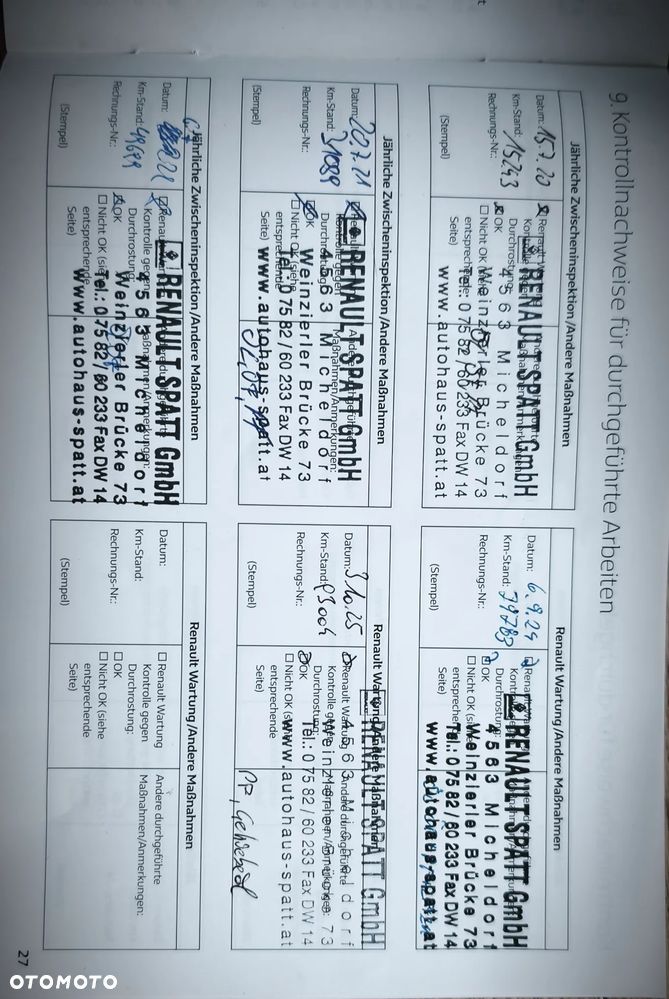 9. Kontrollnachweise für durchgeführte Arbeiten
Jährliche Zwischeninspektion/Andere Maßnahmen
Datum: 15.7.20
Km-Stand: 15243
Rechnungs-Nr.:
(Stempel)
OK
Nicht OK (siehe
entsprechende
Seite)
RENAULT SPATT GmbH
4563 Micheldorf
Weinzierler Brücke 73
Tel.: 0 75 82 / 60 233 Fax DW 14
www.autohaus-spatt.at
Renault Wartung/Andere Maßnahmen
Datum: 6.9.24
Km-Stand: 79783
Rechnungs-Nr.:
(Stempel)
OK
Nicht OK (siehe
entsprechende
Seite)
RENAULT SPATT GmbH
4563 Micheldorf
Weinzierler Brücke 73
Tel.: 0 75 82 / 60 233 Fax DW 14
www.autohaus-spatt.at
Jährliche Zwischeninspektion/Andere Maßnahmen
Datum: 20.7.21
Km-Stand: 31089
Rechnungs-Nr.:
(Stempel)
OK
Nicht OK (siehe
entsprechende
Seite)
RENAULT SPATT GmbH
4563 Micheldorf
Weinzierler Brücke 73
Tel.: 0 75 82 / 60 233 Fax DW 14
www.autohaus-spatt.at
Renault Wartung/Andere Maßnahmen
Datum: 3.10.25
Km-Stand: 93004
Rechnungs-Nr.:
(Stempel)
Renault Wartung
Kontrolle gegen
Durchrostung:
OK
Nicht OK (siehe
entsprechende
Seite)
Andere durchgeführte
Maßnahmen/Anmerkungen:
RENAULT SPATT GmbH
4563 Micheldorf
Weinzierler Brücke 73
Tel.: 0 75 82 / 60 233 Fax DW 14
www.autohaus-spatt.at
Jährliche Zwischeninspektion/Andere Maßnahmen
Datum:
Km-Stand: 49699
Rechnungs-Nr.:
(Stempel)
Kontrolle gegen
Durchrostung:
OK
Nicht OK (siehe
entsprechende
Seite)
Maßnahmen/Anmerkungen:
RENAULT SPATT GmbH
4563 Micheldorf
Weinzierler Brücke 73
Tel.: 0 75 82 / 60 233 Fax DW 14
www.autohaus-spatt.at
Renault Wartung/Andere Maßnahmen
Datum:
Km-Stand:
Rechnungs-Nr.:
(Stempel)
Renault Wartung
Kontrolle gegen
Durchrostung:
OK
Nicht OK (siehe
entsprechende
Seite)
Andere durchgeführte
Maßnahmen/Anmerkungen:
27
OTOMOTO